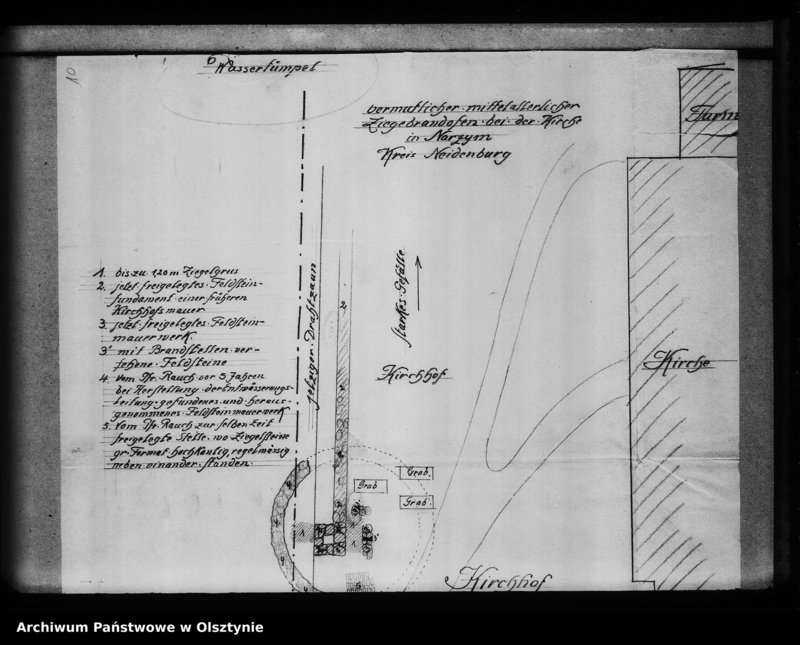 10
6
Wassertümpel
vermutlicher mittelalterlicher
Ziegebrandofen bei der Kirche
in Narzym
Kreis Neidenburg
Turm
1. bis zu 1,20 m Ziegelgrus
2. jetzt freigelegtes Feldstein-
fundament einer früheren
Kirchhofsmauer
3. jetzt freigelegtes Feldstein-
mauerwerk.
3' mit Brandstellen ver-
sehene Feldsteine
4. vom Pfr. Rauch vor 5 Jahren
bei Herstellung der Entwässerungs-
leitung gefundenes und heraus-
genommenes Feldsteinmauerwerk
5. Vom Pfr. Rauch zur selben Zeit
freigelegte Stelle, wo Ziegelsteine
gr. Format hochkantig, regelmässig
neben einander standen.
jetziger Drahtzaun
starkes Gefälle
2
Kirchhof
Kirche
Grab
Grab
Grab
Kirchhof
1
4
5
Archiwum Państwowe w Olsztynie